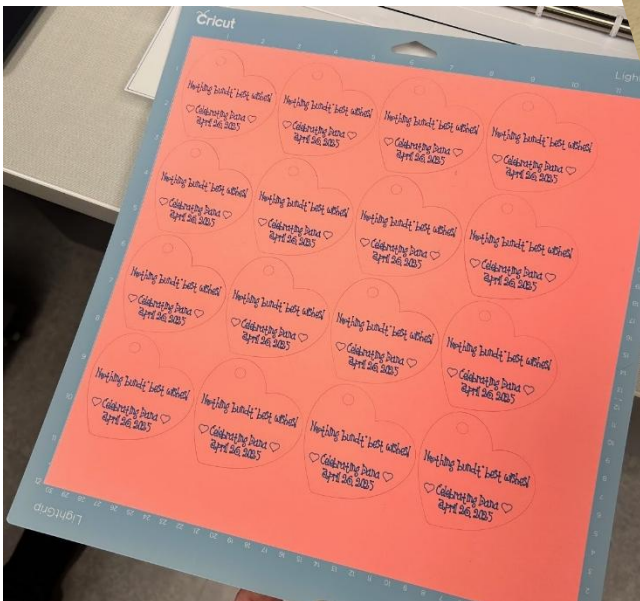 Cricut
Light
Nothing bundt best wishes!
♡ Celebrating Dana ♡
April 26, 2025
Nothing bundt best wishes!
♡ Celebrating Dana ♡
April 26, 2025
Nothing bundt best wishes!
♡ Celebrating Dana ♡
April 26, 2025
Nothing bundt best wishes!
♡ Celebrating Dana ♡
April 26, 2025
Nothing bundt best wishes!
♡ Celebrating Dana ♡
April 26, 2025
Nothing bundt best wishes!
♡ Celebrating Dana ♡
April 26, 2025
Nothing bundt best wishes!
♡ Celebrating Dana ♡
April 26, 2025
Nothing bundt best wishes!
♡ Celebrating Dana ♡
April 26, 2025
Nothing bundt best wishes!
♡ Celebrating Dana ♡
April 26, 2025
Nothing bundt best wishes!
♡ Celebrating Dana ♡
April 26, 2025
Nothing bundt best wishes!
♡ Celebrating Dana ♡
April 26, 2025
Nothing bundt best wishes!
♡ Celebrating Dana ♡
April 26, 2025
Nothing bundt best wishes!
♡ Celebrating Dana ♡
April 26, 2025
Nothing bundt best wishes!
♡ Celebrating Dana ♡
April 26, 2025
Nothing bundt best wishes!
♡ Celebrating Dana ♡
April 26, 2025
Nothing bundt best wishes!
♡ Celebrating Dana ♡
April 26, 2025
LightGrip